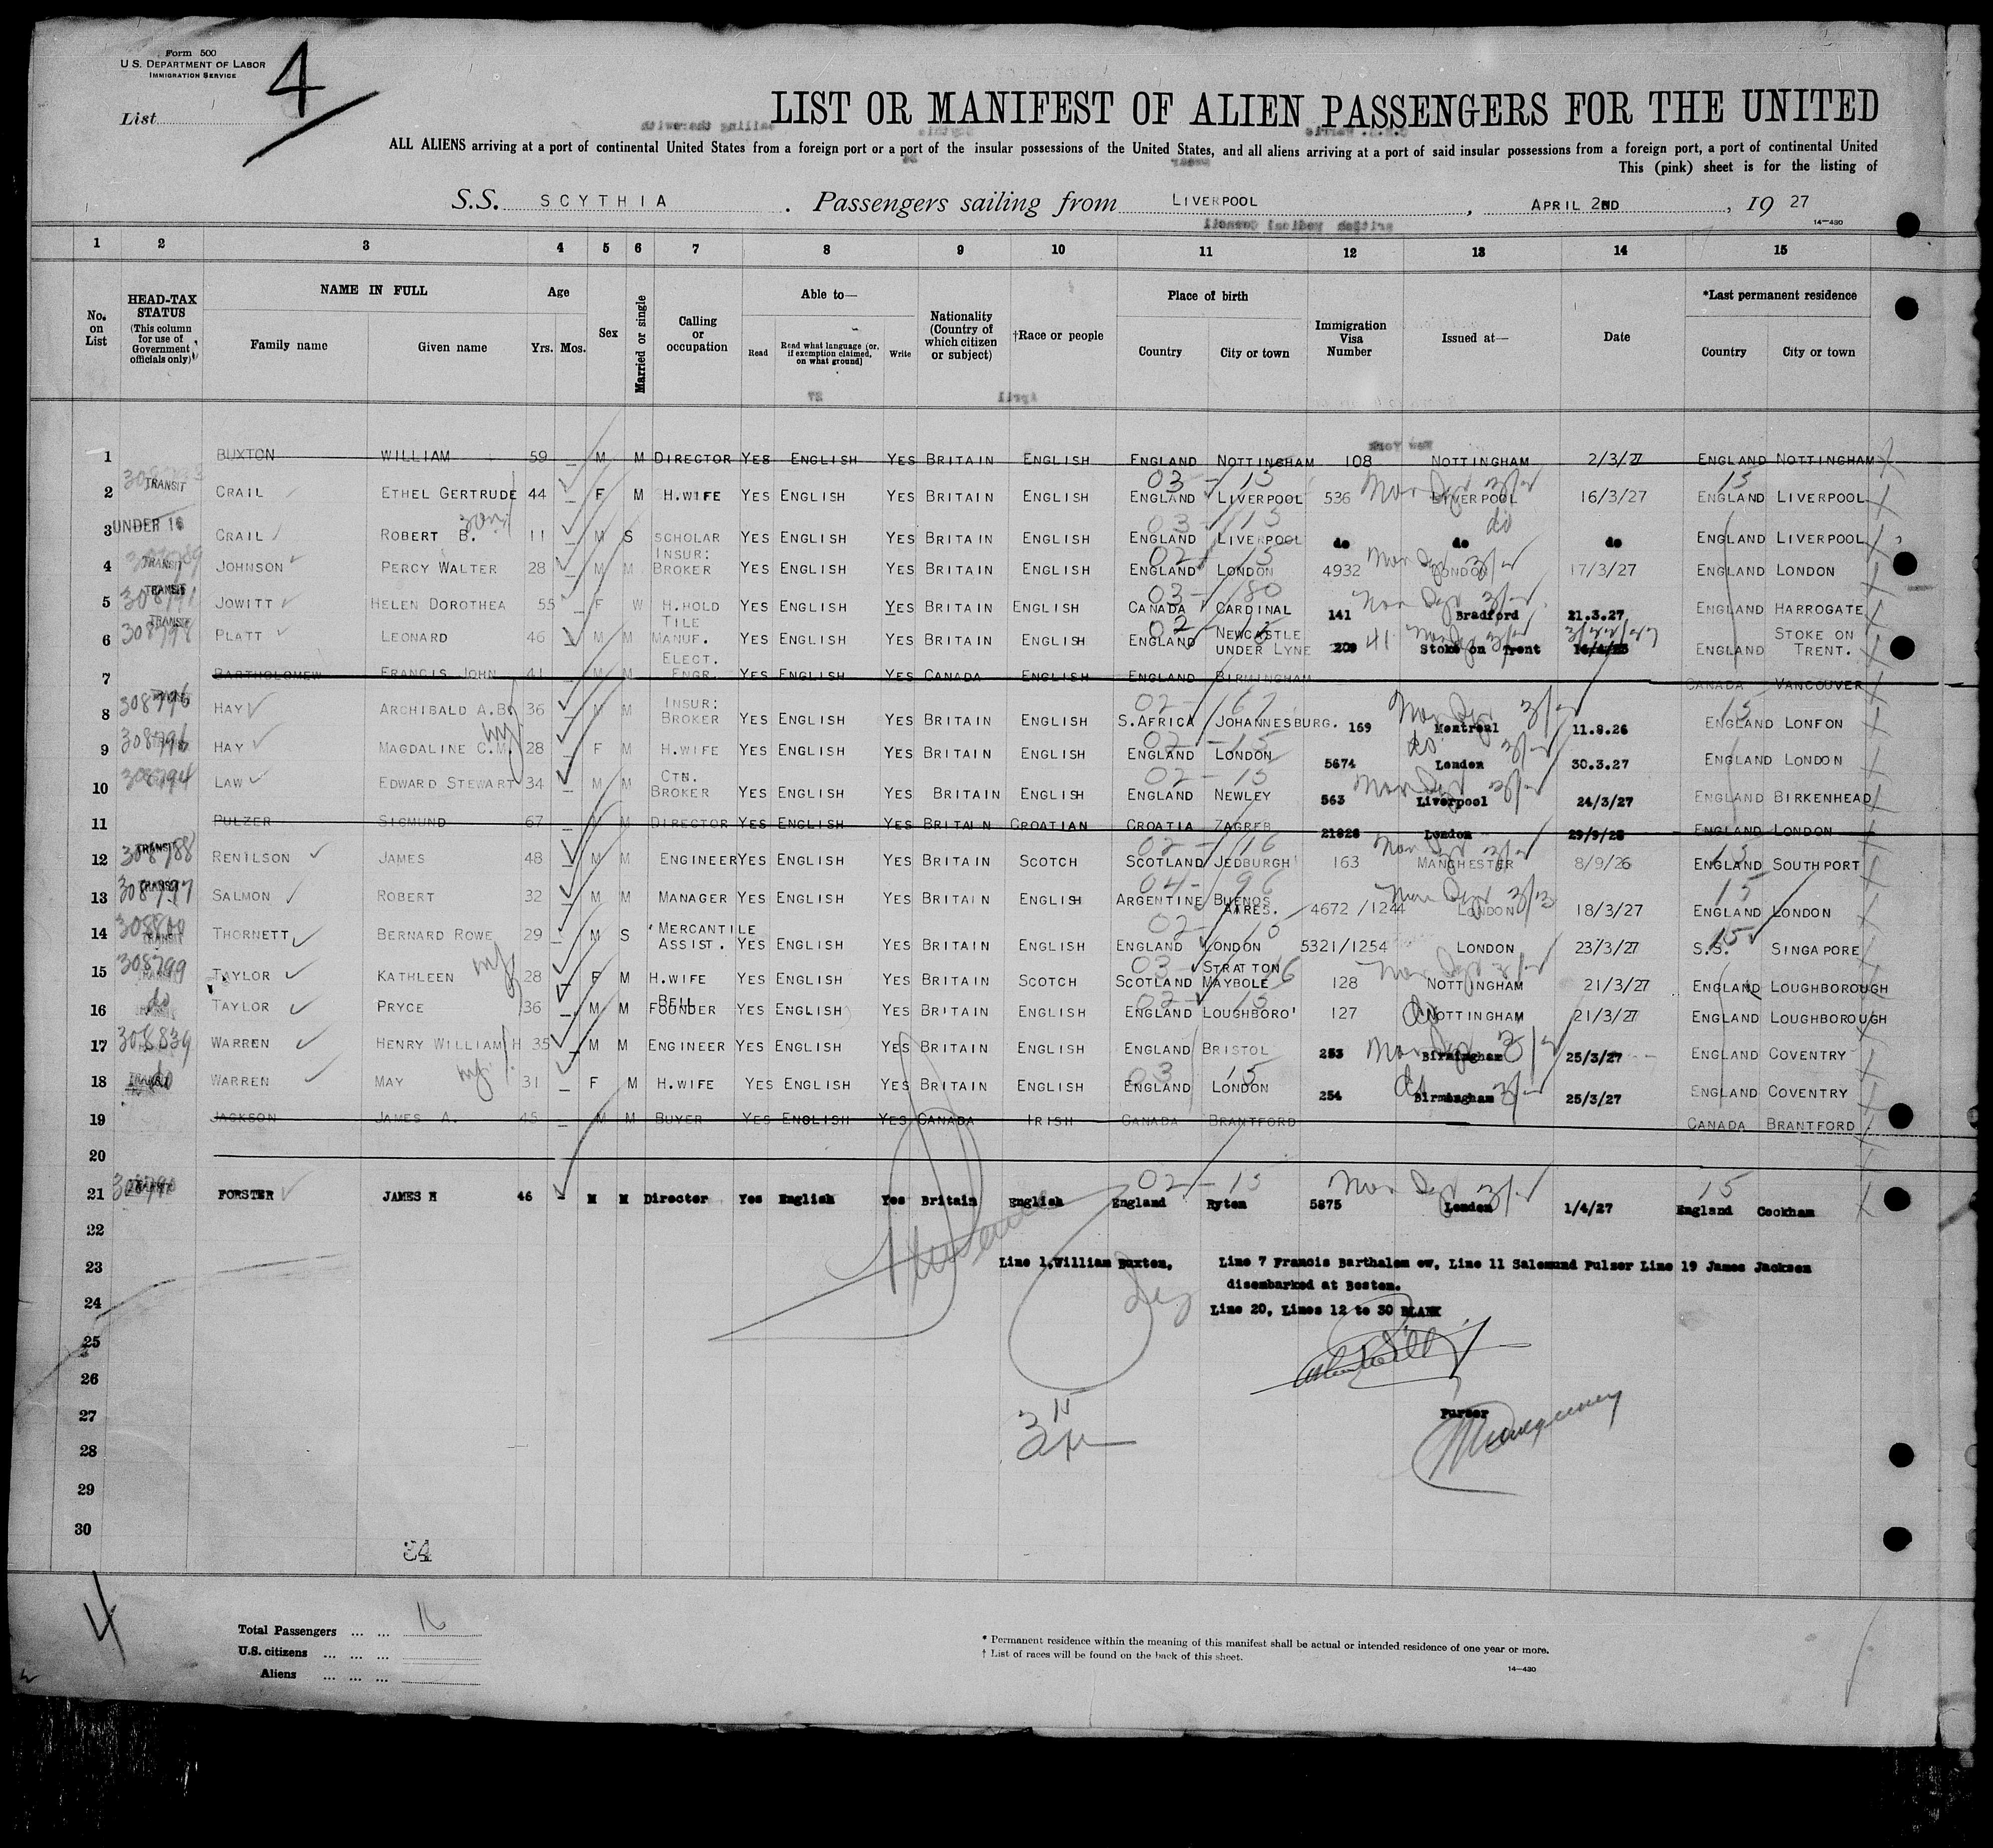 Form 500
U.S. DEPARTMENT OF LABOR
IMMIGRATION SERVICE
List 4
LIST OR MANIFEST OF ALIEN PASSENGERS FOR THE UNITED
ALL ALIENS arriving at a port of continental United States from a foreign port or a port of the insular possessions of the United States, and all aliens arriving at a port of said insular possessions from a foreign port, a port of continental United
This (pink) sheet is for the listing of
S.S. SCYTHIA . Passengers sailing from LIVERPOOL , APRIL 2ND , 19 27
14—430
1 2 3 4 5 6 7 8 9 10 11 12 13 14 15
No. on List HEAD-TAX STATUS (This column for use of Government officials only) NAME IN FULL Family name Given name Age Yrs. Mos. Sex Married or single Calling or occupation Able to— Read Read what language (or, if exemption claimed, on what ground) Write Nationality (Country of which citizen or subject) †Race or people Place of birth Country City or town Immigration Visa Number Issued at— Date *Last permanent residence Country City or town
1 BUXTON WILLIAM 59 M M DIRECTOR YES ENGLISH YES BRITAIN ENGLISH ENGLAND NOTTINGHAM 108 NOTTINGHAM 2/3/27 ENGLAND NOTTINGHAM
2 TRANSIT CRAIL ETHEL GERTRUDE 44 F M H.WIFE YES ENGLISH YES BRITAIN ENGLISH ENGLAND LIVERPOOL 536 LIVERPOOL 16/3/27 ENGLAND LIVERPOOL
3 UNDER 16 CRAIL ROBERT B. 11 M S SCHOLAR YES ENGLISH YES BRITAIN ENGLISH ENGLAND LIVERPOOL do do do ENGLAND LIVERPOOL
4 TRANSIT JOHNSON PERCY WALTER 28 M M INSUR: BROKER YES ENGLISH YES BRITAIN ENGLISH ENGLAND LONDON 4932 LONDON 17/3/27 ENGLAND LONDON
5 TRANSIT JOWITT HELEN DOROTHEA 55 F W H.HOLD YES ENGLISH YES BRITAIN ENGLISH CANADA CARDINAL 141 Bradford 21.3.27 ENGLAND HARROGATE
6 308798 TRANSIT PLATT LEONARD 46 M M TILE MANUF. YES ENGLISH YES BRITAIN ENGLISH ENGLAND NEWCASTLE UNDER LYNE 209 41 Stoke on Trent ENGLAND STOKE ON TRENT.
7 BARTHOLOMEW FRANCIS JOHN 41 M M ELECT. ENGR. YES ENGLISH YES CANADA ENGLISH ENGLAND BIRMINGHAM CANADA VANCOUVER
8 308796 HAY ARCHIBALD A.B. 36 M M INSUR: BROKER YES ENGLISH YES BRITAIN ENGLISH S.AFRICA JOHANNESBURG. 169 Montreal 11.8.26 ENGLAND LONFON
9 308796 HAY MAGDALINE C.M. 28 F M H.WIFE YES ENGLISH YES BRITAIN ENGLISH ENGLAND LONDON 5674 London 30.3.27 ENGLAND LONDON
10 308794 LAW EDWARD STEWART 34 M M CTN. BROKER YES ENGLISH YES BRITAIN ENGLISH ENGLAND NEWLEY 563 Liverpool 24/3/27 ENGLAND BIRKENHEAD
11 PULZER SIGMUND 67 M M DIRECTOR YES ENGLISH YES BRITAIN CROATIAN CROATIA ZAGREB 21928 London 29/9/26 ENGLAND LONDON
12 308788 TRANSIT RENILSON JAMES 48 M M ENGINEER YES ENGLISH YES BRITAIN SCOTCH SCOTLAND JEDBURGH 163 MANCHESTER 8/9/26 ENGLAND SOUTHPORT
13 308797 TRANSIT SALMON ROBERT 32 M M MANAGER YES ENGLISH YES BRITAIN ENGLISH ARGENTINE BUENOS AIRES. 4672/1244 LONDON 18/3/27 ENGLAND LONDON
14 308800 TRANSIT THORNETT BERNARD ROWE 29 M S MERCANTILE ASSIST. YES ENGLISH YES BRITAIN ENGLISH ENGLAND LONDON 5321/1254 LONDON 23/3/27 S.S. SINGAPORE
15 308799 TAYLOR KATHLEEN 28 F M H.WIFE YES ENGLISH YES BRITAIN SCOTCH SCOTLAND STRATTON MAYBOLE 128 NOTTINGHAM 21/3/27 ENGLAND LOUGHBOROUGH
16 do TAYLOR PRYCE 36 M M BELL FOUNDER YES ENGLISH YES BRITAIN ENGLISH ENGLAND LOUGHBORO' 127 NOTTINGHAM 21/3/27 ENGLAND LOUGHBOROUGH
17 308839 WARREN HENRY WILLIAM H 35 M M ENGINEER YES ENGLISH YES BRITAIN ENGLISH ENGLAND BRISTOL 253 Birmingham 25/3/27 ENGLAND COVENTRY
18 TRANSIT do WARREN MAY 31 F M H.WIFE YES ENGLISH YES BRITAIN ENGLISH ENGLAND LONDON 254 Birmingham 25/3/27 ENGLAND COVENTRY
19 JACKSON JAMES A. 45 M M BUYER YES ENGLISH YES CANADA IRISH CANADA BRANTFORD CANADA BRANTFORD
20
21 TRANSIT FORSTER JAMES H 46 M M Director Yes English Yes Britain English England Ryton 5875 London 1/4/27 England Cookham
22
23 Line 1.William Buxton, Line 7 Francis Barthalom ew, Line 11 Salemund Pulzer Line 19 James Jackson
disembarked at Boston.
24 Line 20, Lines 12 to 30 BLANK
25
26
27 Purser
28
29
30
34
4
Total Passengers ... ... 16
U.S. citizens ... ... ...
Aliens ... ... ...
* Permanent residence within the meaning of this manifest shall be actual or intended residence of one year or more.
† List of races will be found on the back of this sheet.
14—430